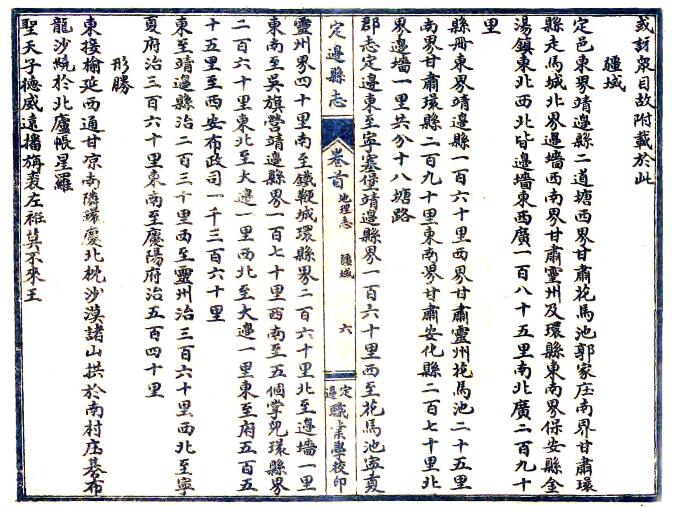 或註衆目故附載於此
疆域
定邑東界靖邊縣二道塘西界甘肅花馬池郭家庄南界甘肅環
縣走馬城北界邊墻西南界甘肅靈州及環縣東南界保安縣金
湯鎮東北西北皆邊墻東西廣一百八十五里南北廣二百九十
里
縣冊東界靖邊縣一百六十里西界甘肅靈州花馬池二十五里
南界甘肅環縣二百九十里東南界甘肅安化縣二百七十里北
界邊墻一里共分十八塘路
郡志定邊東至寧塞堡靖邊縣界一百六十里西至花馬池寧夏
定邊縣志
卷首
地理志
疆域
六
定邊職業學校印
靈州界四十里南至鐵鞭城環縣界二百六十里北至邊墻一里
東南至吳旗營靖邊縣界一百七十里西南至五個掌兒環縣界
二百六十里東北至大邊一里西北至大邊一里東至府五百五
十五里至西安布政司一千三百六十里
東至靖邊縣治二百三十里西至靈州治三百六十里西北至寧
夏府治三百六十里東南至慶陽府治五百四十里
形勝
東接榆延西通甘凉南隣環慶北枕沙漠諸山拱於南村庄碁布
龍沙繞於北廬帳星羅
聖天子德威遠播旃裘左袵莫不來王